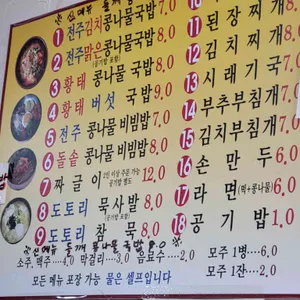 ※신메뉴
1 전주김치콩나물국밥 7.0
2 전주맑은콩나물국밥 7.0
(공기밥 포함)
3 황태 콩나물 국밥 8.0
4 황태 버섯 국밥 9.0
5 전주 콩나물 비빔밥 7.0
6 돌솥 콩나물 비빔밥 8.0
7 짜글이 2인 이상 주문 가능 12.0
공기밥 별도
8 도토리 묵사발 8.0
(공기밥 포함)
9 도토리 묵 8.0
10
11 된장찌개 8.0
12 김치찌개 8.0
13 시래기국 7.0
14 부추부침개 7.0
15 김치부침개 7.0
16 손만두 6.0
17 라면(떡+콩나물) 6.0
18 공기밥 1.0
※신메뉴 들깨 콩나물 국밥 8.0 ※
소주, 맥주....4.0 막걸리....3.0 음료수....2.0
모든 메뉴 포장 가능 물은 셀프입니다
모주 1병....6.0
모주 1잔....2.0